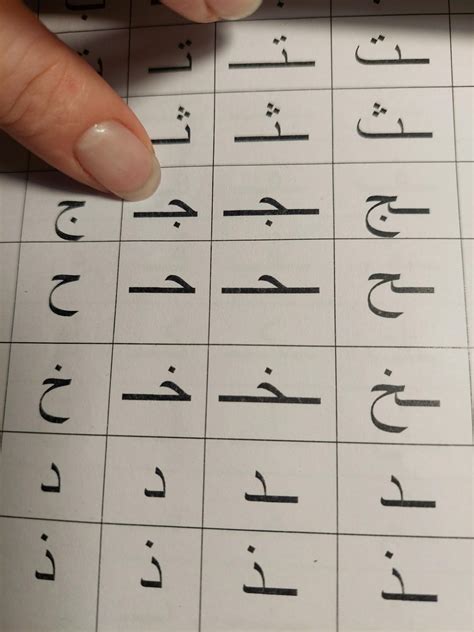 ـت ـتـ تـ
ـث ـثـ ثـ
ـج ـجـ جـ ج
ـح ـحـ حـ ح
ـخ ـخـ خـ خ
ـد ـد د د
ـذ ـذ ذ ذ